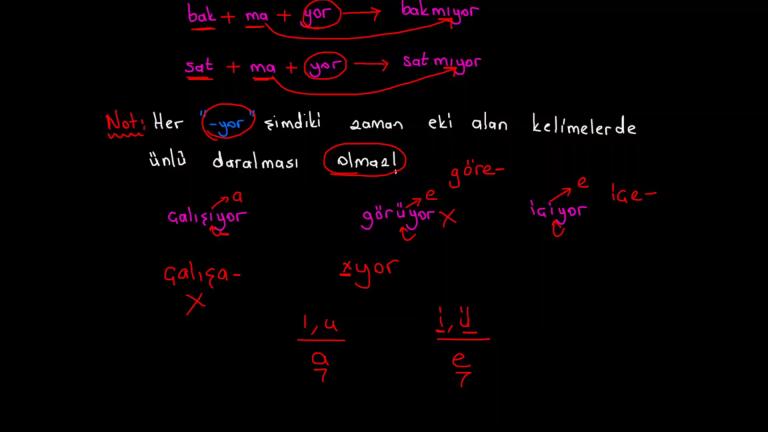 bak + ma + yor → bakmıyor
sat + ma + yor → satmıyor
Not: Her "-yor" şimdiki zaman eki alan kelimelerde
ünlü daralması olmaz!
a e göre- e içe-
çalışıyor görüyor x içiyor
çalışa- xyor
x
ı, u i, ü
a e
? ?